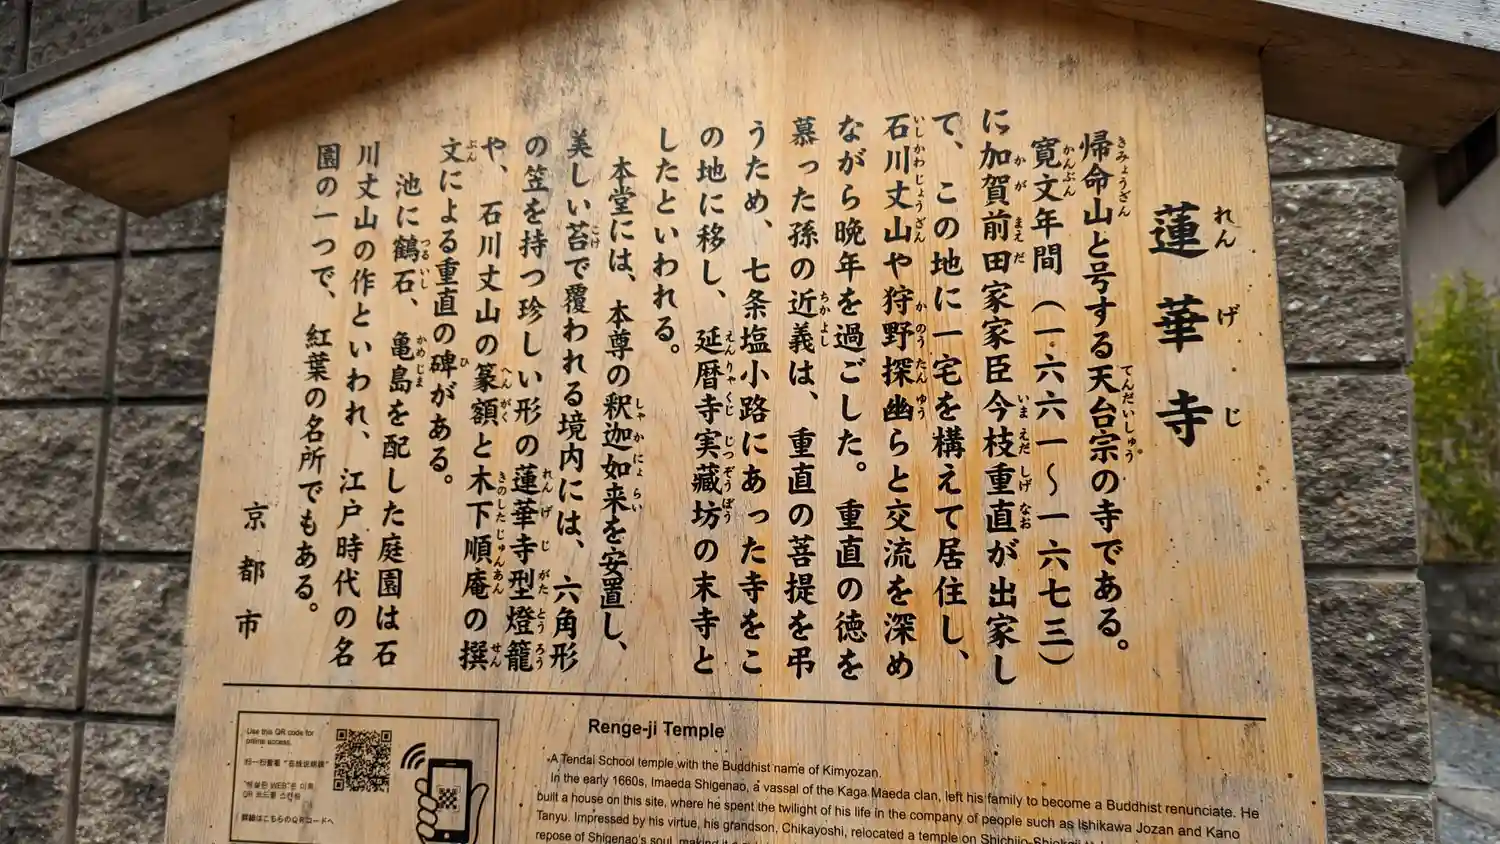 蓮華寺
れんげじ
帰命山と号する天台宗の寺である。
きみょうざん てんだいしゅう
寛文年間（一六六一～一六七三）
かんぶん
に加賀前田家家臣今枝重直が出家し
かが まえだ いまえだ しげなお
て、この地に一宅を構えて居住し、
石川丈山や狩野探幽らと交流を深め
いしかわじょうざん かのう たんゆう
ながら晩年を過ごした。重直の徳を
慕った孫の近義は、重直の菩提を弔
ちかよし
うため、七条塩小路にあった寺をこ
の地に移し、延暦寺実藏坊の末寺と
えんりゃくじ じつぞうぼう
したといわれる。
本堂には、本尊の釈迦如来を安置し、
しゃかにょらい
美しい苔で覆われる境内には、六角形
こけ
の笠を持つ珍しい形の蓮華寺型燈籠
れんげじがたとうろう
や、石川丈山の篆額と木下順庵の撰
へんがく きのしたじゅんあん せん
文による重直の碑がある。
ぶん ひ
池に鶴石、亀島を配した庭園は石
つるいし かめじま
川丈山の作といわれ、江戸時代の名
園の一つで、紅葉の名所でもある。
京都市
Use this QR code for
online access.
扫一扫查看“在线说明牌”
"해설판 WEB"은 이쪽
QR 코드를 스캔하
詳細はこちらのQRコードへ
Renge-ji Temple
A Tendai School temple with the Buddhist name of Kimyozan.
In the early 1660s, Imaeda Shigenao, a vassal of the Kaga Maeda clan, left his family to become a Buddhist renunciate. He
built a house on this site, where he spent the twilight of his life in the company of people such as Ishikawa Jozan and Kano
Tanyu. Impressed by his virtue, his grandson, Chikayoshi, relocated a temple on Shichijo-Shiokoji
repose of Shigenao's soul, making it